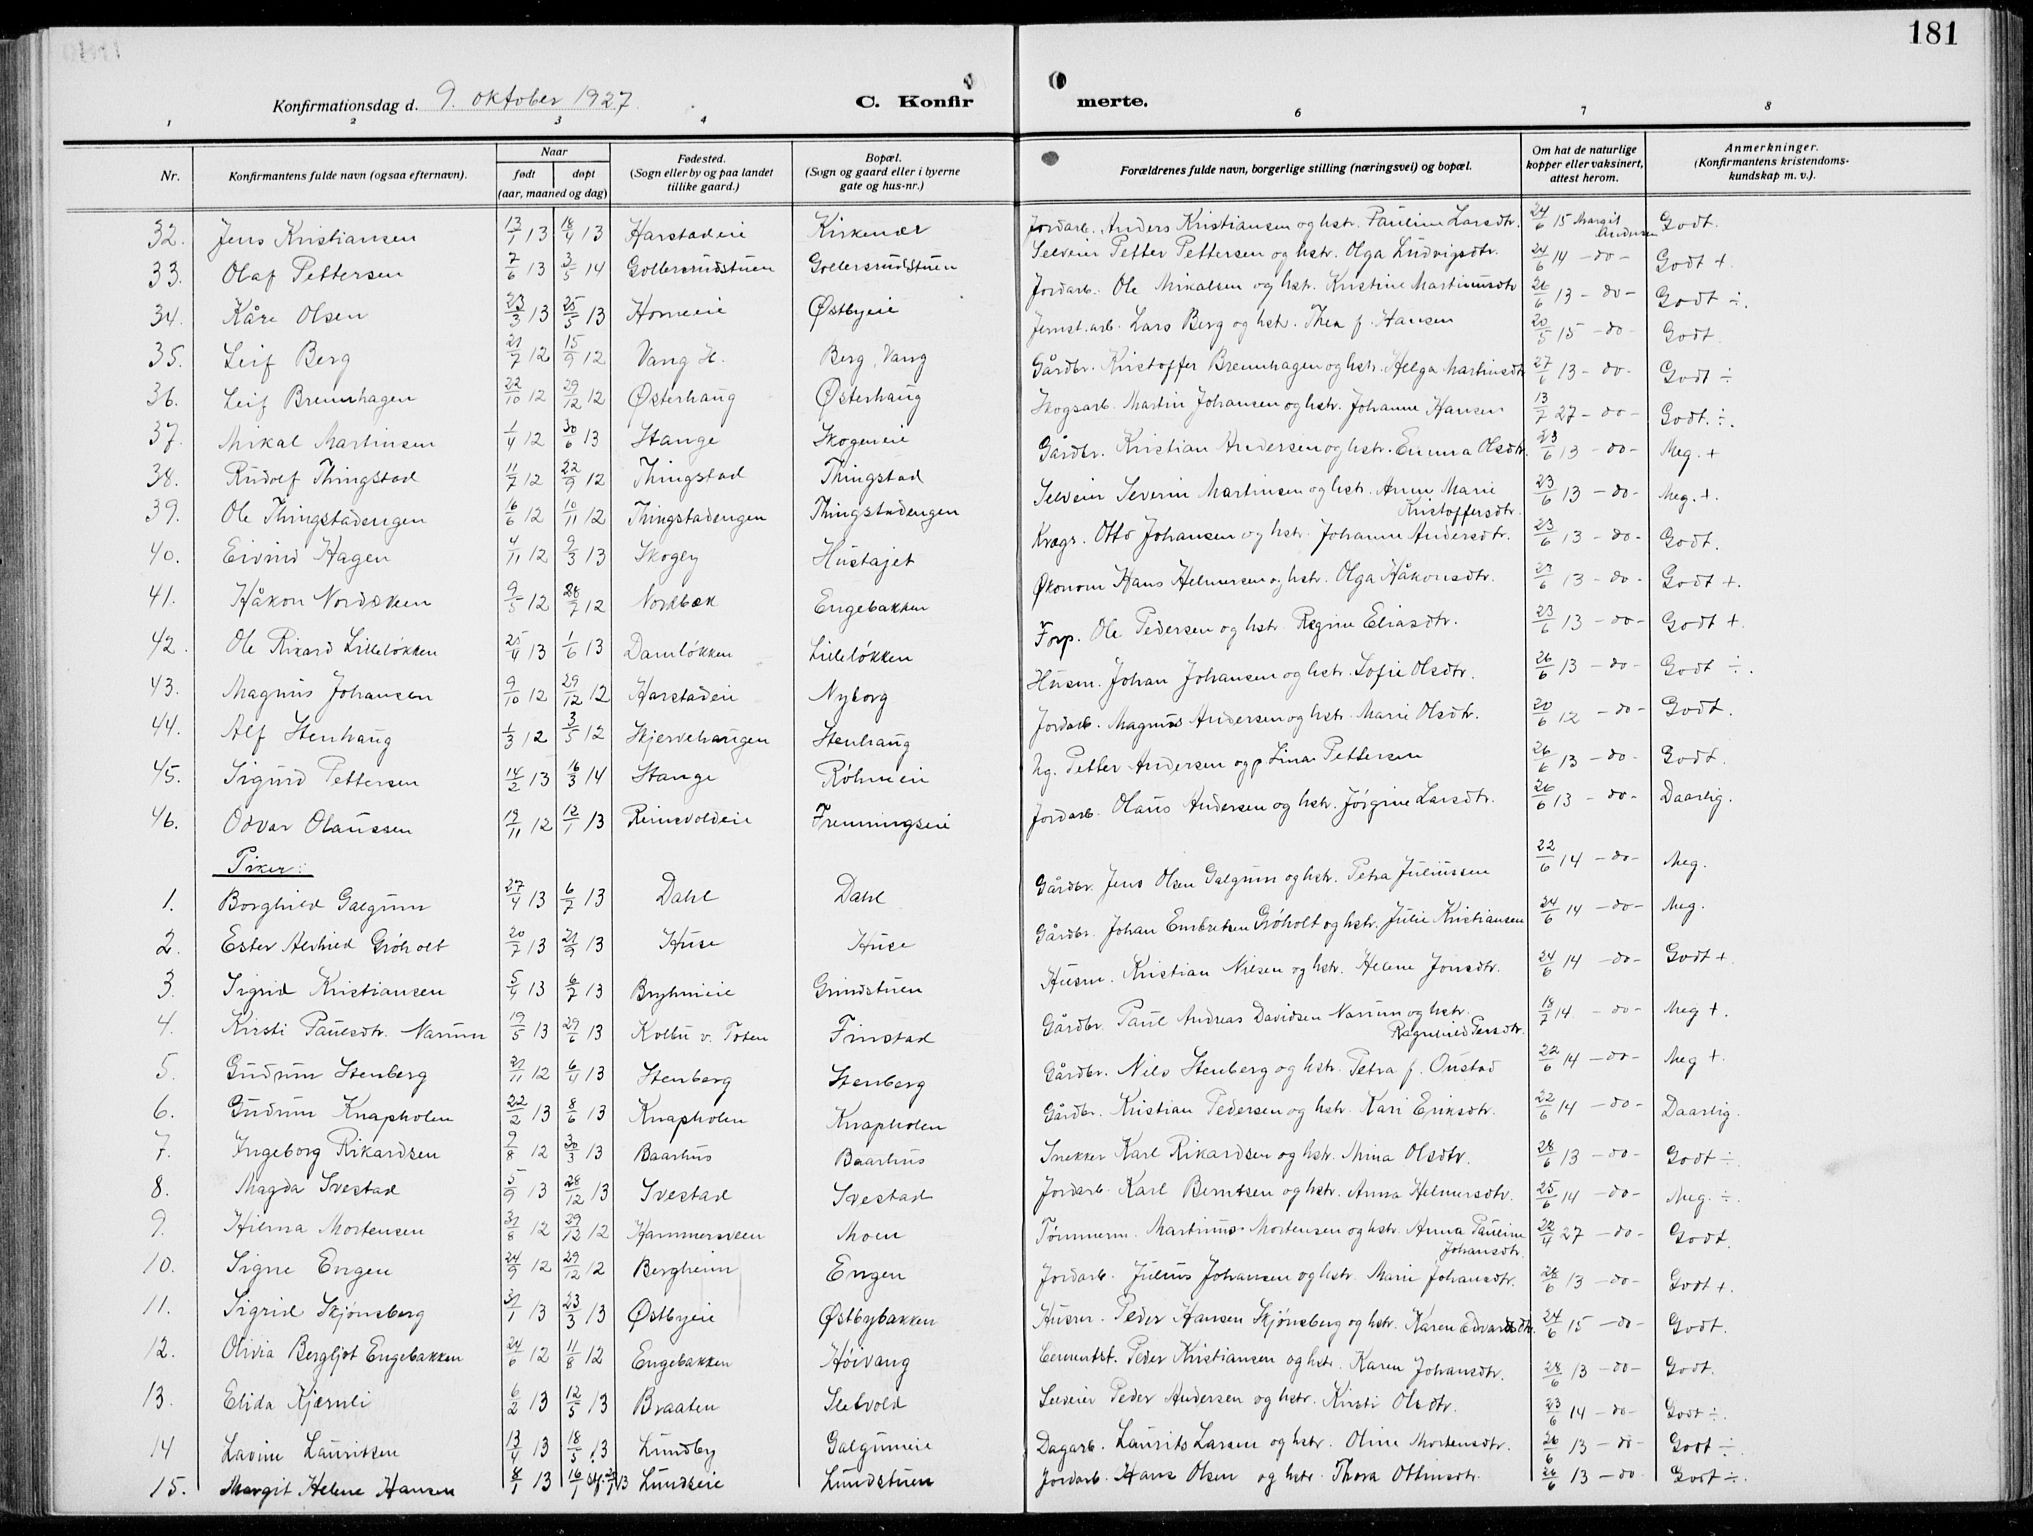 181
Konfirmationsdag d. 9. oktober 1927.
C. Konfirmerte.
1 2 3 4 6 7 8
Nr. Konfirmantens fulde navn (ogsaa efternavn). Naar født døpt (aar, maaned og dag) Fødested. (Sogn eller by og paa landet tillike gaard.) Bopæl. (Sogn og gaard eller i byerne gate og hus-nr.) Forældrenes fulde navn, borgerlige stilling (næringsvei) og bopæl. Om hat de naturlige kopper eller vaksinert, attest herom. Anmerkninger. (Konfirmantens kristendoms-kundskap m. v.).
32. Jens Kristiansen 13/1 13 18/4 13 Harstadeie Kirkenær Jordarb. Anders Kristiansen og hstr. Pauline Larsdtr. 24/6 15 Margit Andersen Godt.
33. Olaf Pettersen 7/6 13 3/5 14 Gollersrudstuen Gollersrudstuen Selveier Petter Pettersen og hstr. Olga Ludvigsdtr. 24/6 14 - do - Godt +
34. Kåre Olsen 23/3 13 25/5 13 Horneeie Østbyeie Jordarb. Ole Mikalsen og hstr. Kristine Martinusdtr 26/6 13 - do - Godt ÷.
35. Leif Berg 21/7 12 15/9 12 Vang H. Berg, Vang Jernst.arb. Lars Berg og hstr. Thea f. Hansen 20/5 15 - do Godt
36. Leif Brennhagen 22/10 12 29/12 12 Østerhaug Østerhaug Gårdbr. Kristoffer Brennhagen og hstr. Helga Martinsdtr 27/6 13 - do - Godt ÷
37. Mikal Martinsen 1/4 12 30/6 13 Stange Skogeneie Skogsarb. Martin Johansen og hstr. Johanne Hansen 13/7 27 - do - Godt. ÷.
38. Rudolf Thingstad 11/7 12 22/9 12 Thingstad Thingstad Gårdbr. Kristian Andersen og hstr. Emma Olsdtr. 23/6 13 - do - Meg. +
39. Ole Thingstadengen 16/6 12 10/11 12 Thingstadengen Thingstadengen Selveier Severin Martinsen og hstr. Anne Marie Kristoffersdtr. 23/6 13 - do - Meg. +.
40. Eivind Hagen 4/11 12 9/3 13 Skogly Hustajet Krøgr. Otto Johansen og hstr. Johanne Andersdtr. 23/6 13 - do - Godt.
41. Håkon Nordsveen 9/5 12 28/7 12 Nordbæk Engebakken Økonom Hans Helmersen og hstr. Olga Håkonsdtr. 13 - do - Godt +.
42. Ole Rikard Lilleløkken 25/4 13 1/6 13 Damløkken Lilleløkken Forp. Ole Pedersen og hstr. Regine Eliasdtr. 23/6 13 - do - Godt +
43. Magnus Johansen 9/10 12 29/12 12 Harstadeie Nyborg Husm. Johan Johansen og hstr. Sofie Olsdtr. 26/6 13 - do - Godt ÷.
44. Alf Stenhaug 1/3 12 3/5 12 Skjervehaugen Stenhaug Jordarb. Magnus Andersen og hstr. Marie Olsdtr. 20/6 12 - do - Godt.
45. Sigurd Pettersen 14/2 13 16/3 14 Stange Røhneeie Ug. Petter Andersen og p. Lina Pettersen 26/6 13 - do - Godt.
46. Odvar Olaussen 19/11 12 12/1 13 Rimsvoldeie Frenningseie Jordarb. Olaus Andersen og hstr. Jørgine Larsdtr. 26/6 13 - do - Daarlig.
Piker:
1. Borghild Galgum 27/4 13 6/7 13 Dahl Dahl Gårdbr. Jens Olsen Galgum og hstr. Petra Juliussen 22/6 14 - do - Meg.
2. Ester Alvhild Grøholt 20/7 13 21/9 13 Huse Huse Gårdbr. Johan Embretsen Grøholt og hstr. Julie Kristiansen 24/6 14 - do - Meg.
3. Sigrid Kristiansen 5/4 13 6/7 13 Bryhnieie Grindstuen Husm. Kristian Nilsen og hstr. Helene Jonsdtr. 24/6 14 - do - Godt +.
4. Kirsti Paulsdtr. Narum 19/5 13 29/6 13 Kolbu v. Toten Finstad Gårdbr. Paul Andreas Davidsen Narum og hstr. Ragnhild Persdtr. 18/7 14 - do - Meg +.
5. Gudrun Stenberg 21/11 12 6/4 13 Stenberg Stenberg Gårdbr. Nils Stenberg og hstr. Petra f. Oustad 22/6 14 - do - Meg +
6. Gudrun Knapholen 22/2 13 8/6 13 Knapholen Knapholen Gårdbr. Kristian Pedersen og hstr. Kari Eriksdtr. 22/6 14 - do - Daarlig.
7. Ingeborg Rikardsen 9/8 12 30/3 13 Baarhus Baarhus Snekker Karl Rikardsen og hstr. Mina Olsdtr. 28/6 13 - do - Godt ÷
8. Magda Svestad 5/9 13 28/12 13 Svestad Svestad Jordarb. Karl Berntsen og hstr. Anna Helmersdtr. 25/6 14 - do - Meg. ÷.
9. Hilma Mortensen 31/8 12 29/12 12 Hammersveen Moen Tømmerm. Martinus Mortensen og hstr. Anna Pauline Johansdtr. 22/4 27 - do - Godt.
10. Signe Engen 24/9 12 29/12 12 Bergheim Engen Jordarb. Julius Johansen og hstr. Marie Johansdtr. 28/6 13 - do - Godt +.
11. Sigrid Skjønsberg 31/1 13 23/3 13 Østbyeie Østbybakken Husm. Peder Hansen Skjønsberg og hstr. Karen Edvardsdtr. 24/6 15 - do - Godt.
12. Olivia Bergljot Engebakken 24/6 12 11/8 12 Engebakken Høivang Cementst. Peder Kristiansen og hstr. Karen Johansdtr. 28/6 13 - do - Godt.
13. Elida Kjærnli 6/2 13 12/5 13 Braaten Sletvold Selveier Peder Andersen og hstr. Kirsti Olsdtr. 23/6 14 - do - Godt ÷.
14 Lavine Lauritsen 13/4 13 18/5 13 Lundby Galgumeie Dagarb. Laurits Larsen og hstr. Oline Mortensdtr. 26/6 13 - do - Godt ÷
15. Margit Helene Hansen 8/1 13 16/1 13 Lundseie Lundstuen Jordarb. Hans Olsen og hstr. Thora Ottinsdtr. 26/6 13 - do Godt ÷.